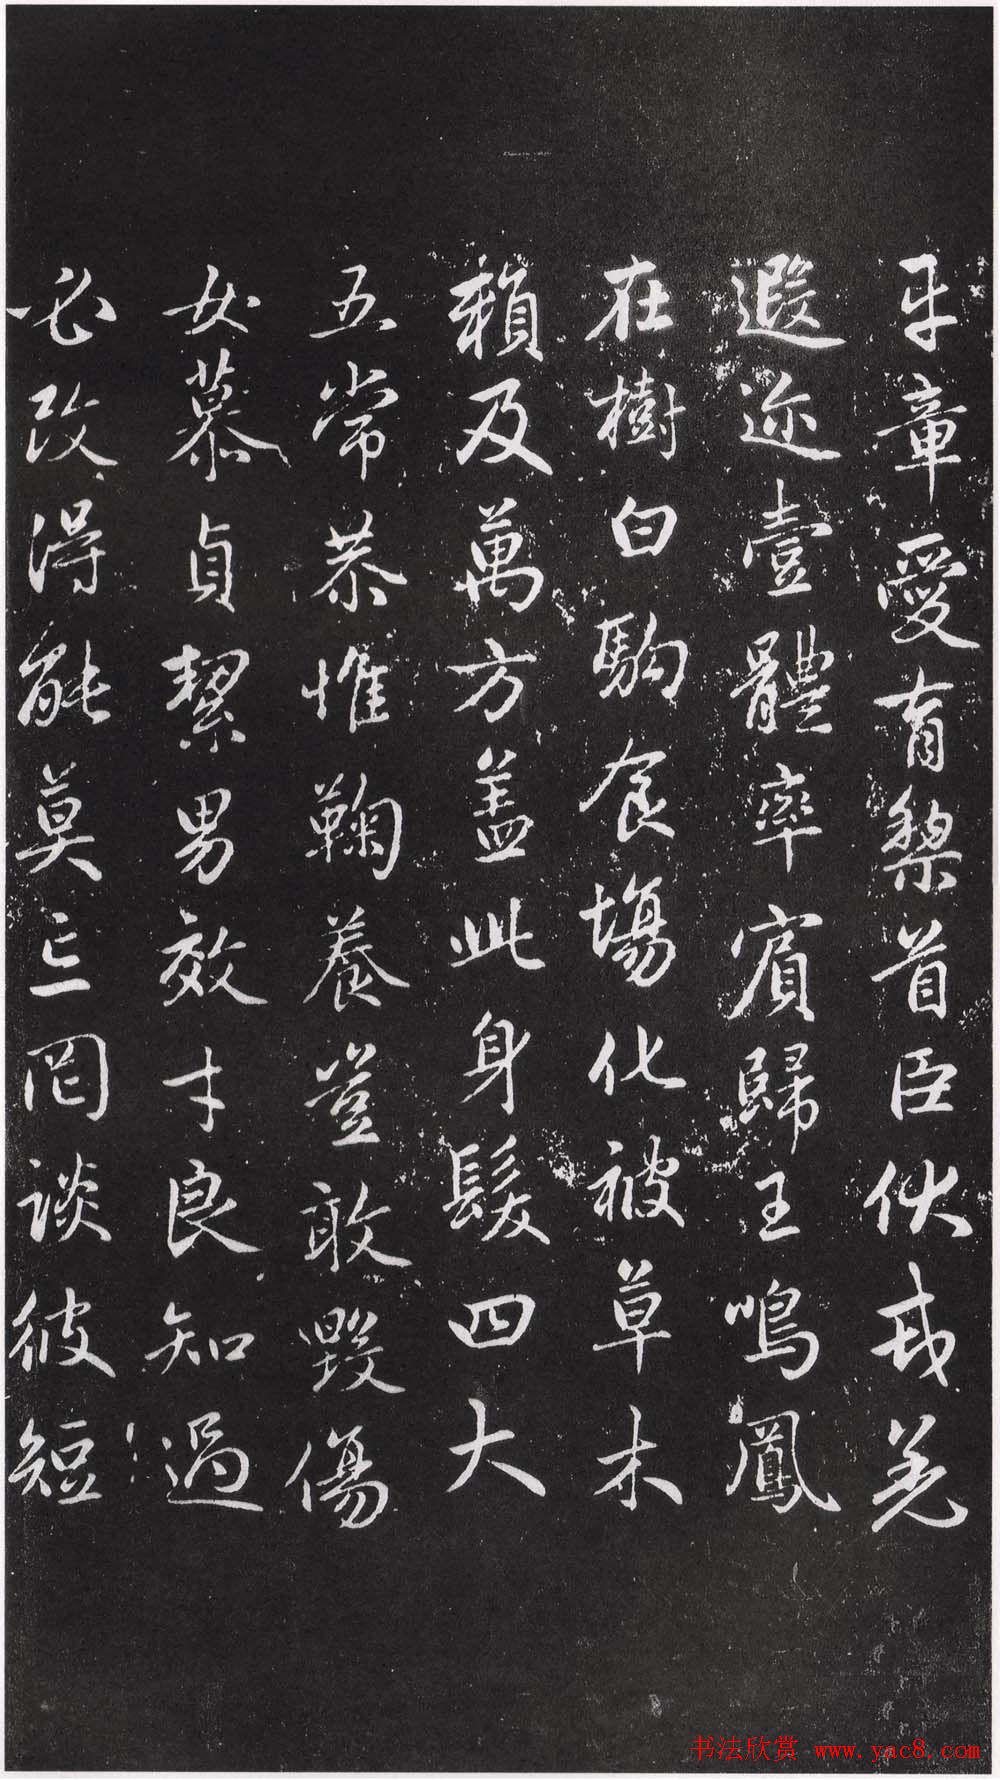 平章愛育黎首臣伏戎羌
遐迩壹體率賓歸王鳴鳳
在樹白駒食場化被草木
賴及萬方盖此身髮四大
五常恭惟鞠養豈敢毀傷
女慕貞絜男效才良知過
必改得能莫忘罔談彼短
书法欣赏 www.yac8.com